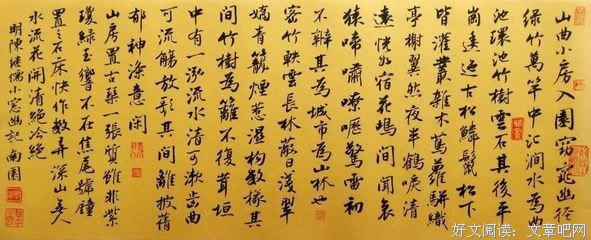 山曲小房入園窈窕幽径
绿竹萬竿中汇澗水為曲
池環池竹樹雲石其後平
崗逶迤古松鱗鬣松下
皆灌叢雜木蔦蘿駢織
亭榭翼然夜半鶴唳清
遠恍如宿花塢間聞哀
猿啼嘯嘹嚦驚霜初
不辨其為城市為山林也
密竹軼雲長林蔽日淺翠
嬌青籠煙惹濕构數椽其
間竹樹為籬不復葺垣
中有一泓流水清可漱齒曲
可流觴放歌其間離披蒨
郁神滌意閑
山房置古琴一張質雖非紫
瓊綠玉響不在焦尾號鐘
置之石床快作數弄深山無人
水流花開清絕冷絕
明陳继儒小窗幽記南園
好文阅读：文章吧网